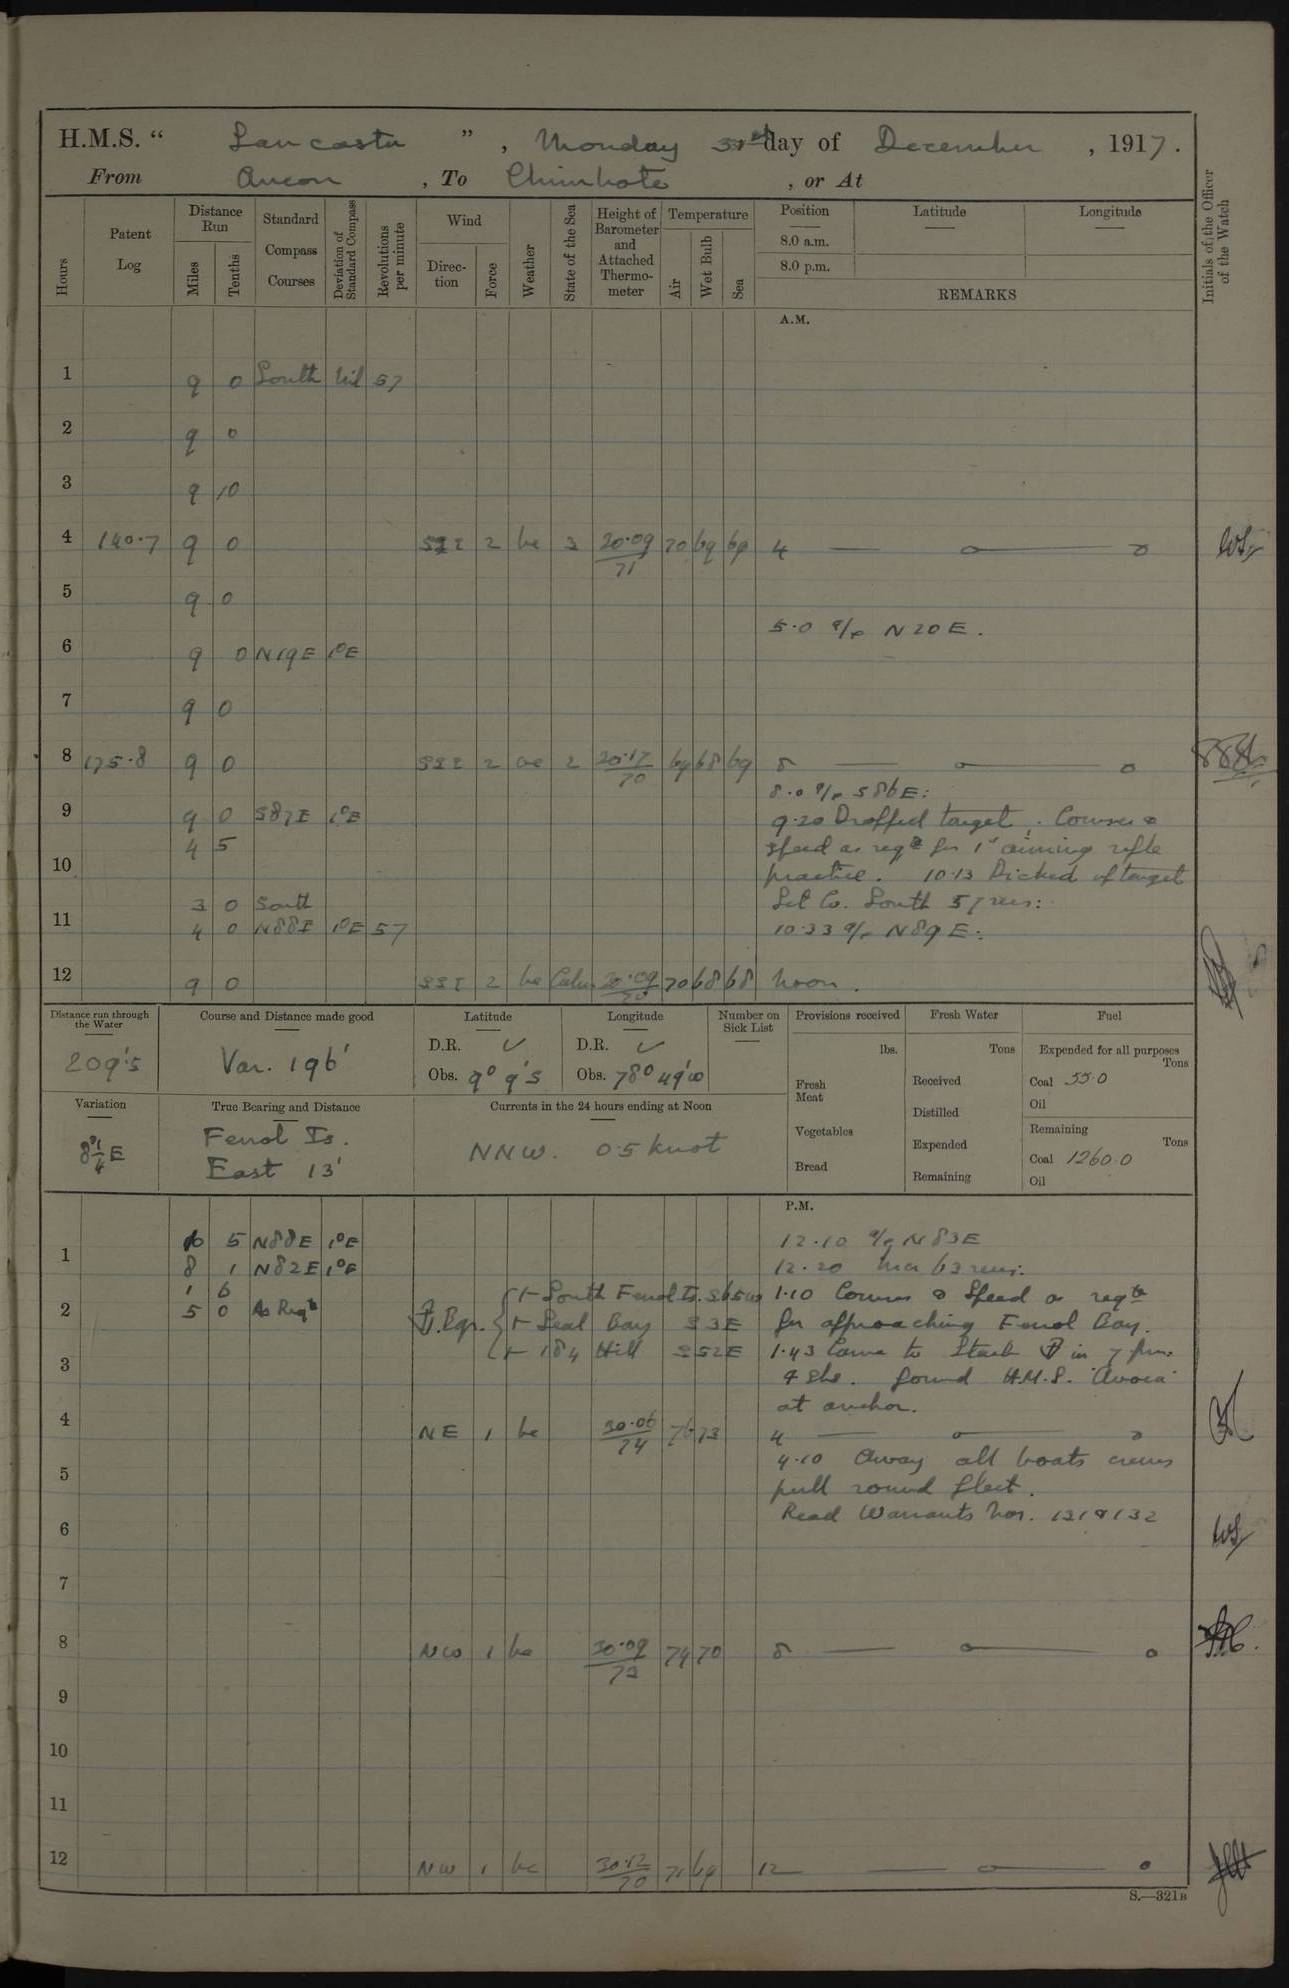 H.M.S. “ Lancaster ” , Monday 31st day of December , 1917.
From Ancon , To Chimbote , or At
Hours
Patent Log
Distance Run
Miles
Tenths
Standard Compass Courses
Deviation of Standard Compass
Revolutions per minute
Wind
Direction
Force
Weather
State of the Sea
Height of Barometer and Attached Thermometer
Temperature
Air
Wet Bulb
Sea
Position
8.0 a.m.
8.0 p.m.
Latitude
Longitude
REMARKS
Initials of the Officer of the Watch
A.M.
1 9 0 South Nil 57
2 9 0
3 9 10
4 140.7 9 0 2 bc 3 70 69 4
5 9 0
5.0 a/c N20E.
6 9 0 N19E 1°E
7 9 0
8 175.8 9 0 SSE 2 2 69 68 69 8
8.0 a/c S86E:
9 9 0 S87E 1°E 9.20 Dropped target. Course &
4 5 speed as reqd for 1" aiming rifle
10 practice. 10.13 Picked up target
3 0 South Set Co. South 57 revs:
11 4 0 N88E 1°E 57 10.33 a/c N89E:
12 9 0 SSE 2 bc Calm 70 68 68 Noon.
Distance run through the Water
209'.5
Course and Distance made good
Var. 196'
Latitude
D.R. ✓
Obs. 9° 9' S
Longitude
D.R. ✓
Obs. 78° 49' W
Number on Sick List
Provisions received
lbs.
Fresh Meat
Vegetables
Bread
Fresh Water
Tons
Received
Distilled
Expended
Remaining
Fuel
Expended for all purposes
Tons
Coal 55.0
Oil
Remaining
Tons
Coal 1260.0
Oil
Variation
8¼°E
True Bearing and Distance
Ferrol Is.
East 13'
Currents in the 24 hours ending at Noon
NNW. 0.5 knot
P.M.
5 N88E 1°E 12.10 a/c N83E
1 8 1 N82E 1°E 12.20 63 revs:
1 6 South Ferrol Is. S65W 1.10 Course & Speed as reqte
2 5 0 As Reqte Bgs. Seal Bay S3E for approaching Ferrol Bay.
3 184 Hill S52E 1.43 Came to Starb in 7 fms.
4 shs. found H.M.S. "Avoca"
at anchor.
4 NE 1 bc 30.06/74 76 73 4
4.10 Away all boats crews
5 pull round fleet.
6 Read Warrants Nos. 131 & 132
7
8 NW 1 bc 74 70 8
9
10
11
12 NW 1 bc 30.12/70 71 69 12
S.—321B